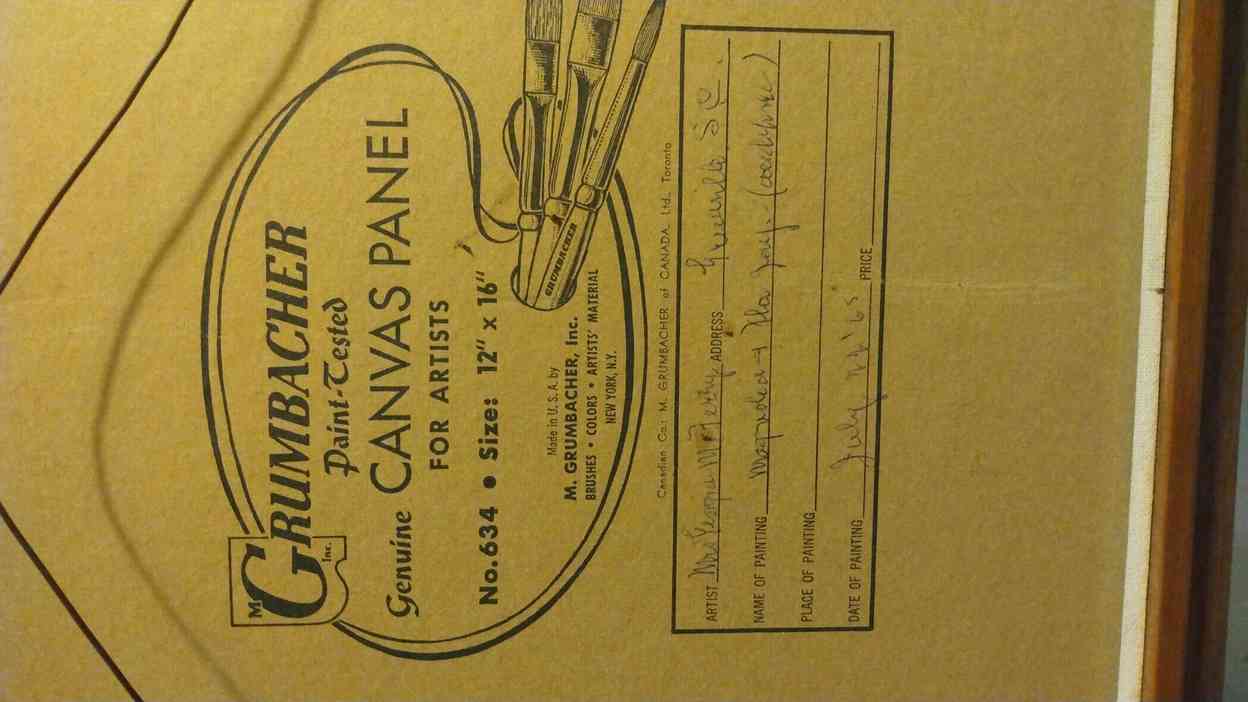 M
GRUMBACHER
Inc.
Paint-Tested
Genuine CANVAS PANEL
FOR ARTISTS
No.634 • Size: 12" x 16"
Made in U. S. A. by
M. GRUMBACHER, Inc.
BRUSHES • COLORS • ARTISTS' MATERIAL
NEW YORK, N.Y.
GRUMBACHER
Canadian Co.: M. GRUMBACHER of CANADA, Ltd., Toronto
ARTIST Mrs ADDRESS Greenville, S C.
NAME OF PAINTING
PLACE OF PAINTING
DATE OF PAINTING July '65 PRICE